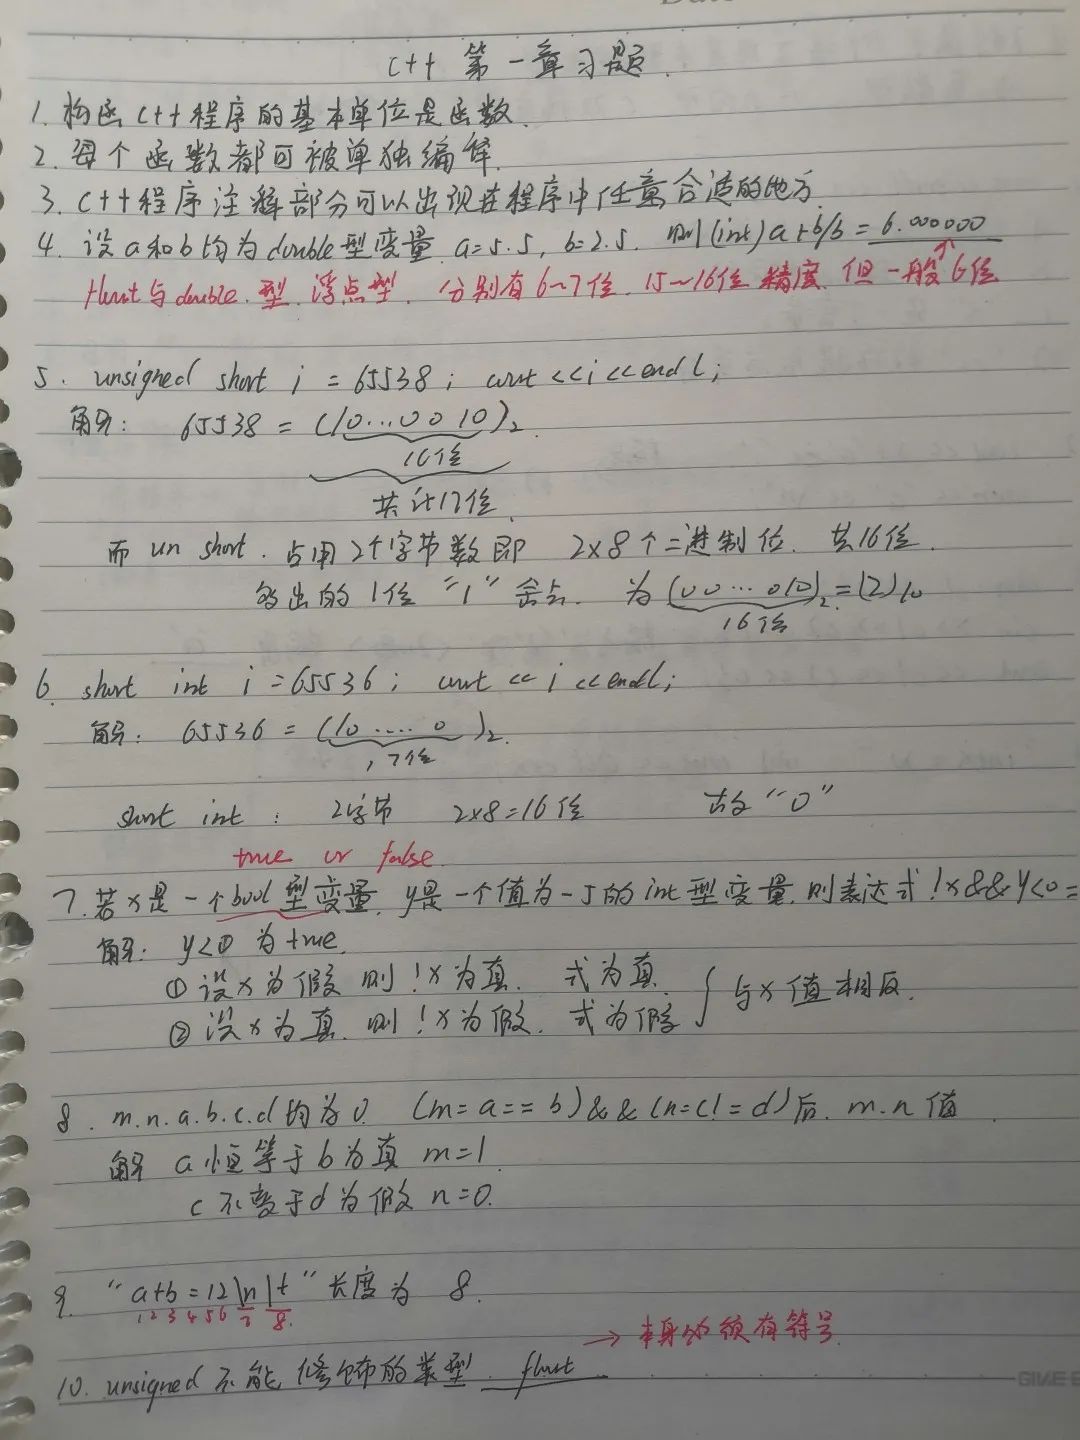 C++ 第一章习题.
1. 构函C++程序的基本单位是函数.
2. 每个函数都可被单独编译.
3. C++程序注释部分可以出现在程序中任意合适的地方.
4. 设a和b均为double型变量. a=5.5, b=2.5. 则(int)a+b/b=6.000000
float与double.型.浮点型. 分别有6~7位. 15~16位精度. 但一般6位
5. unsigned short i = 65538; cout<<i<<endl;
解: 65538 = (10...0010)₂.
16位
共计17位.
而 un short. 占用2个字节数即 2x8个二进制位. 共16位.
多出的1位"1"舍去. 为(00...010)₂=(2)10
16位
6. short int i=65536; cout<<i<<endl;
解: 65536 = (10....0)₂.
17位
short int : 2字节 2x8=16位 故"0"
true or false.
7. 若x是一个bool型变量. y是一个值为-5的int型变量.则表达式!x&&y<0=
解: y<0 为true.
① 设x为假 则!x为真. 式为真.
② 设x为真.则!x为假. 式为假 } 与x值相反.
8. m.n.a.b.c.d均为0. (m=a==b)&&(n=c!=d)后. m.n值.
解 a恒等于b为真 m=1.
c不等于d为假 n=0.
9. "a+b=12\n\t"长度为 8.
1 2 3 4 5 6 7 8.
→ 本身必须有符号.
10. unsigned不能修饰的类型 float
GIVE E